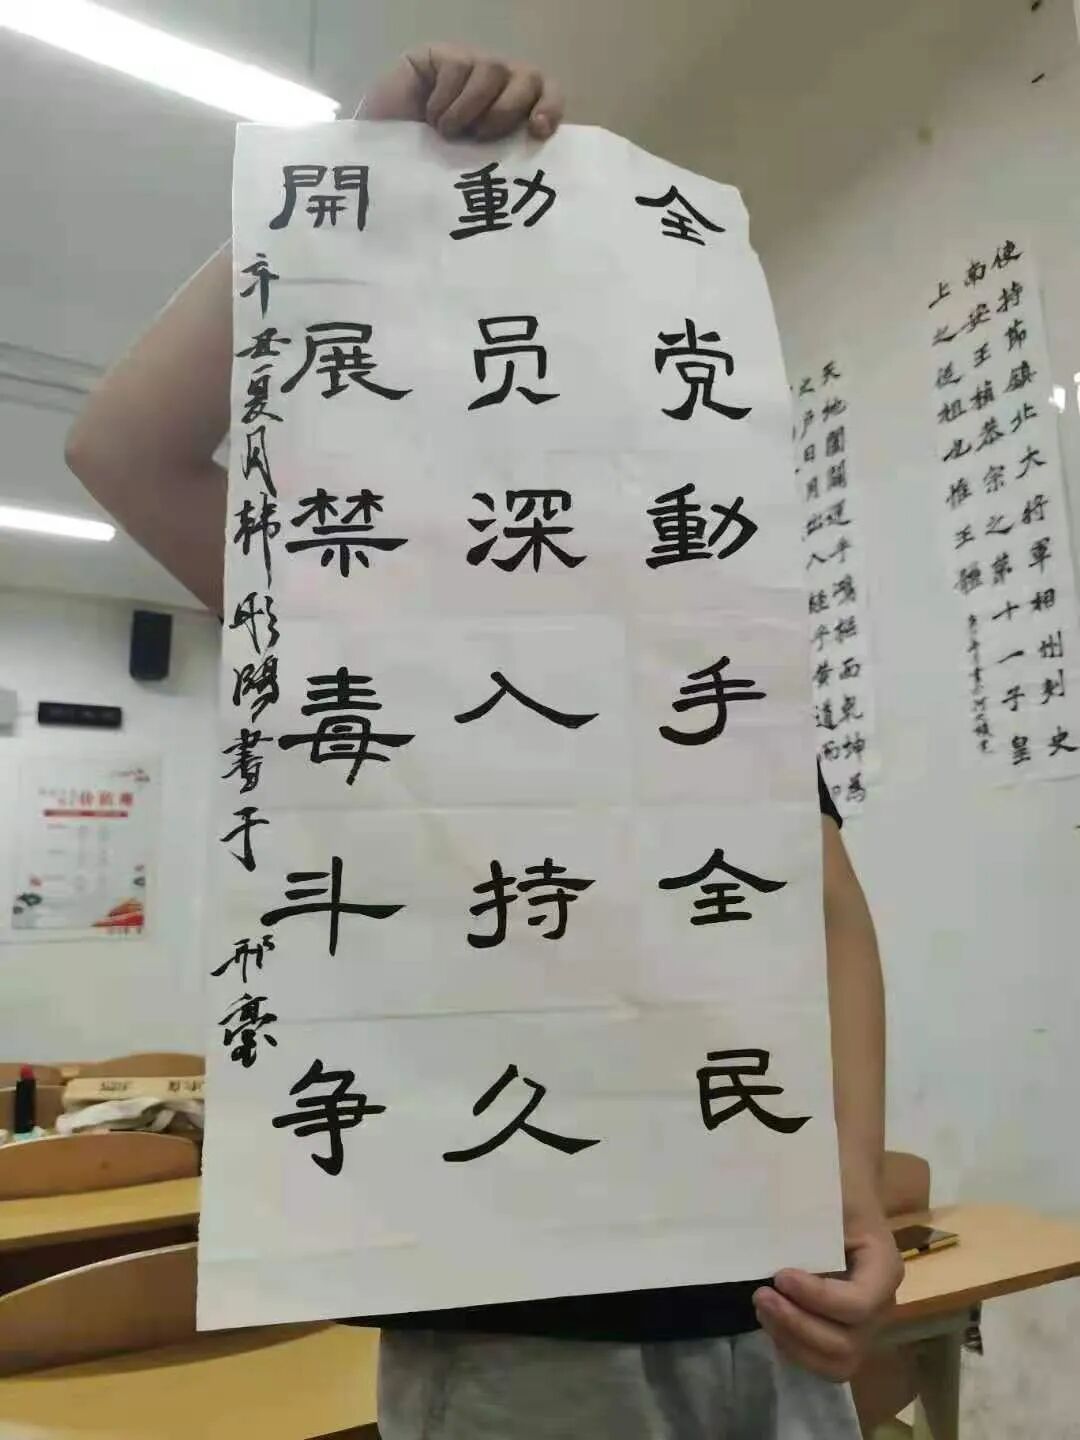 全党動手全民
動员深入持久
開展禁毒斗争
辛丑夏月韩彤陽書于
使持節鎮北大将軍相州刺史
南安王楨恭宗之第十一子皇
上之従祖也惟王體
天地闔闢運乎鴻樞而乾坤為
之户日月出入経乎黄道而